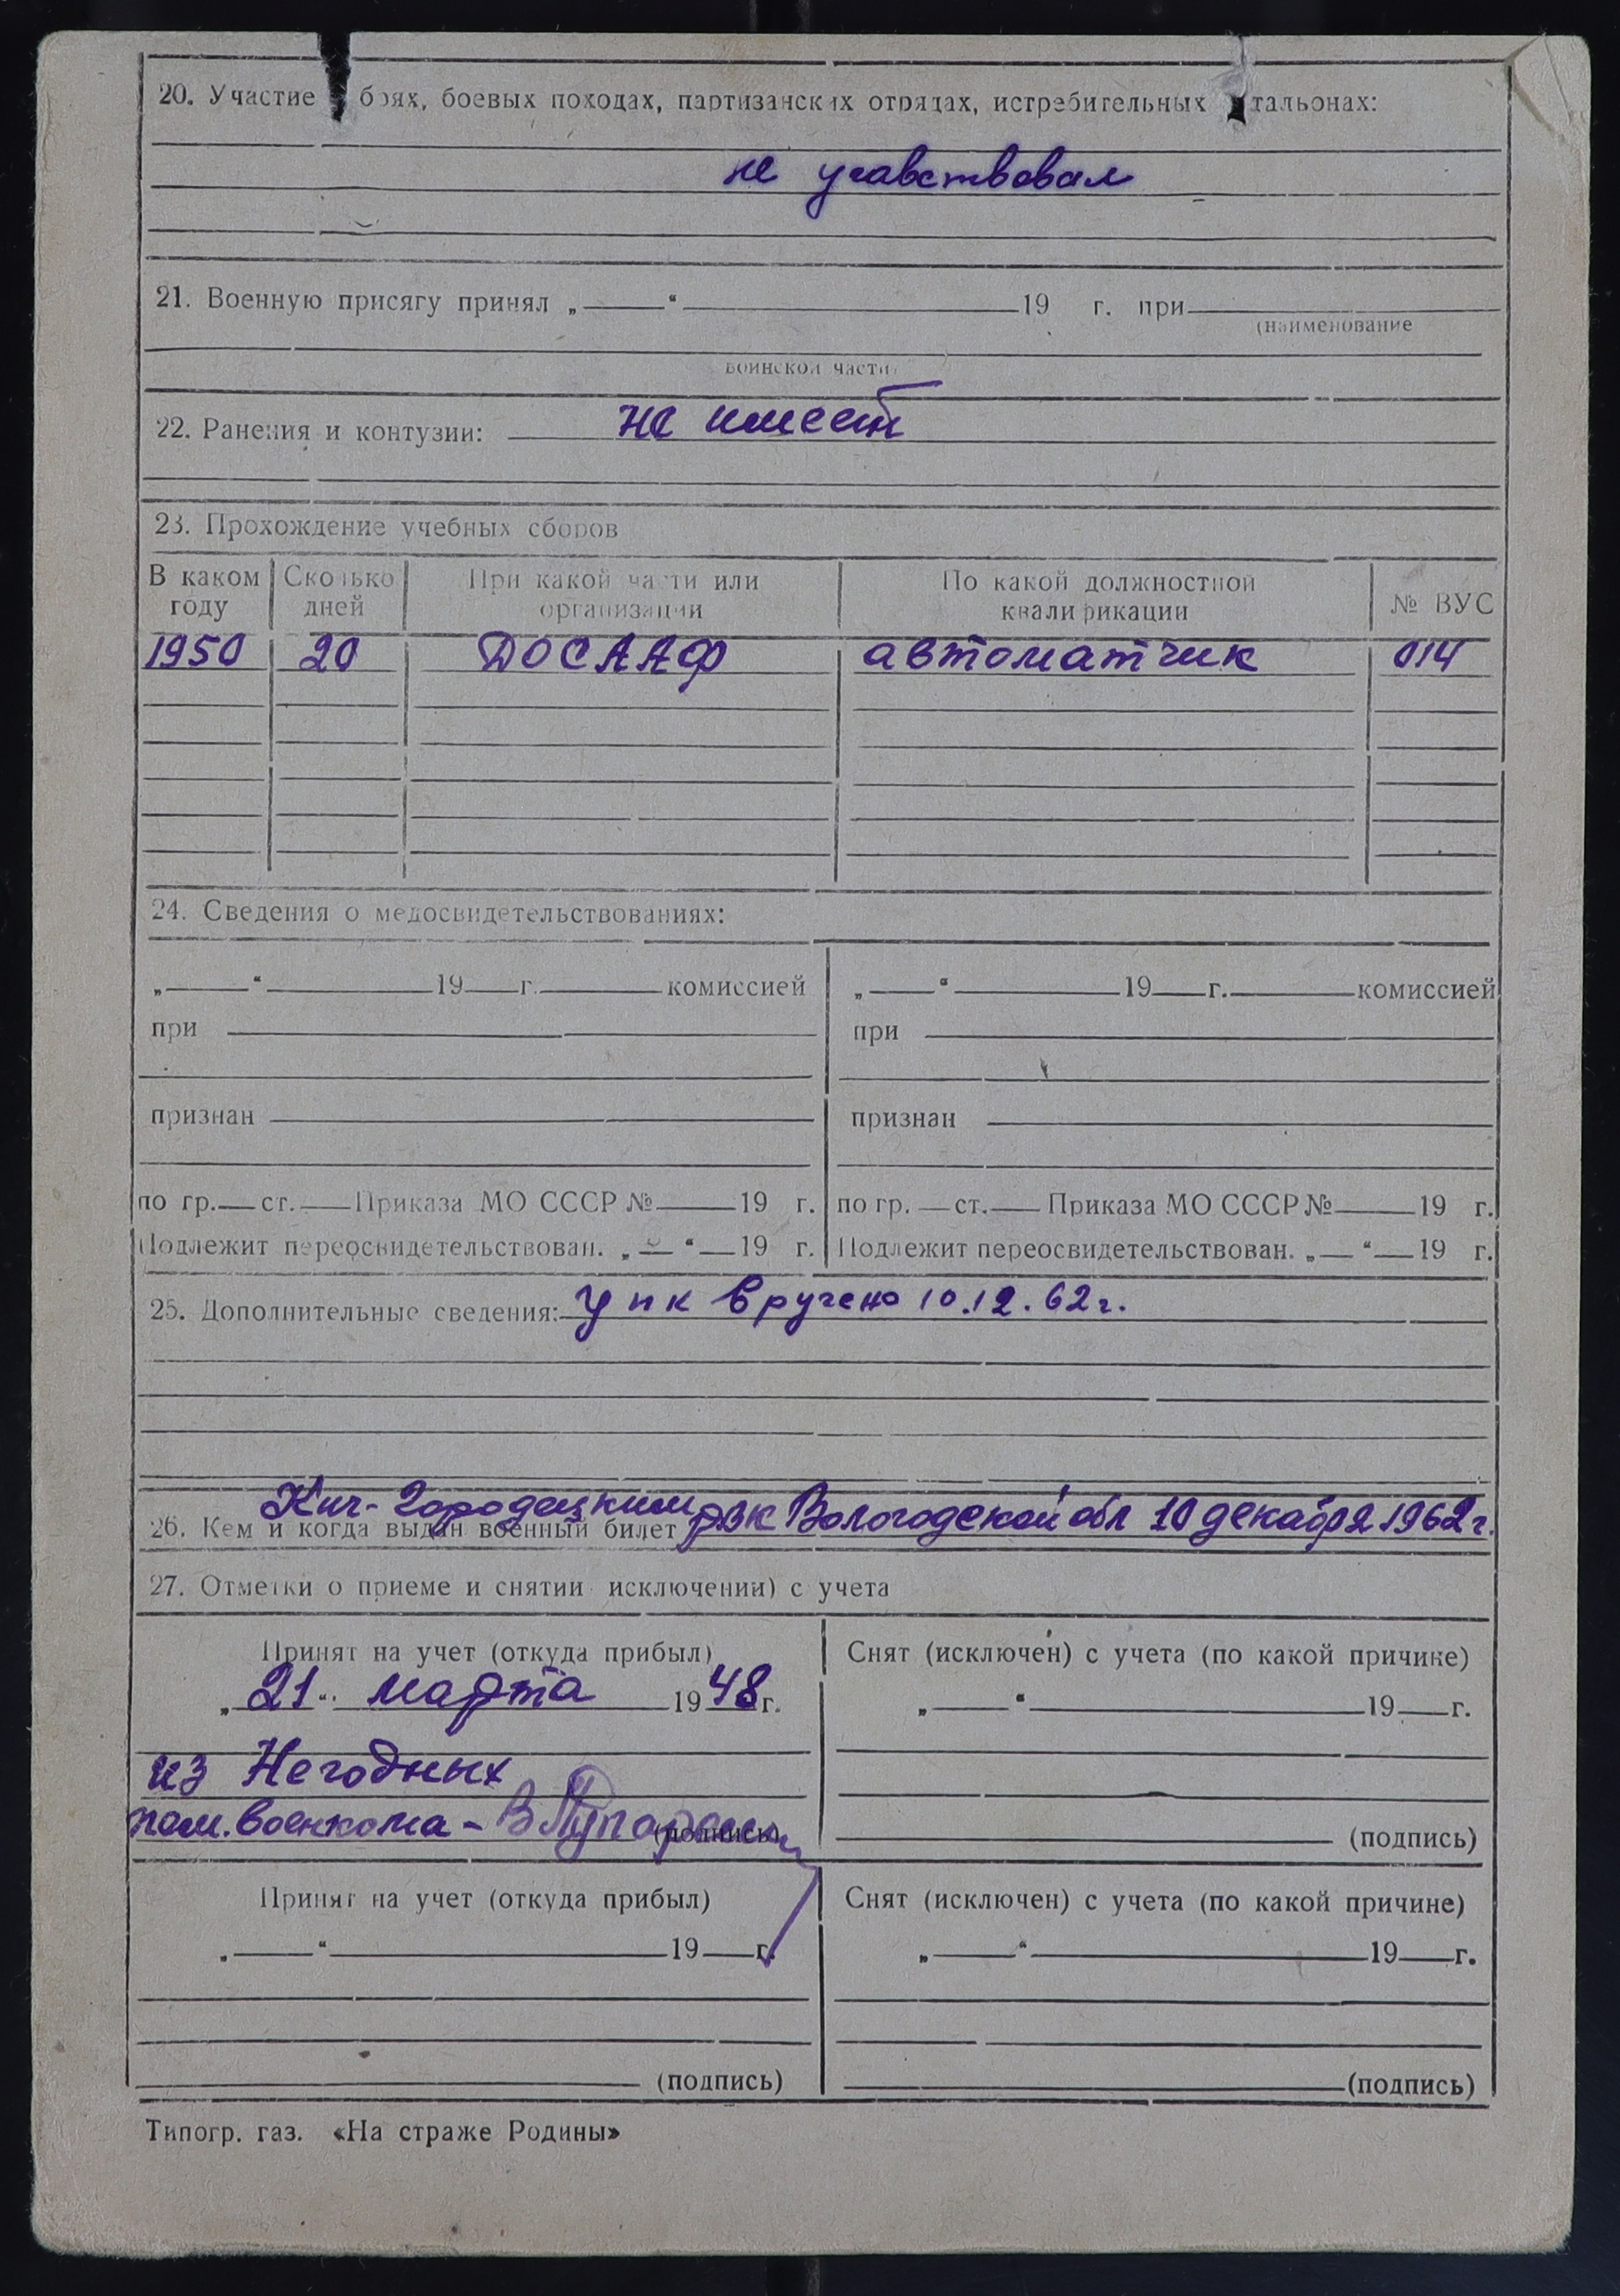 20. Участие боях, боевых походах, партизанских отрядах, истребительных тальонах:
не учавствовал
21. Военную присягу принял „ “ 19 г. при
(наименование
воинской части)
22. Ранения и контузии: не имеет
23. Прохождение учебных сборов
В каком году Сколько дней При какой части или организации По какой должностной квалификации № ВУС
1950 20 ДОСААФ автоматчик 014
24. Сведения о медосвидетельствованиях:
„ “ 19 г. комиссией „ “ 19 г. комиссией
при при
признан признан
по гр. ст. Приказа МО СССР № 19 г. по гр. ст. Приказа МО СССР № 19 г.
Подлежит переосвидетельствован. „ “ 19 г. Подлежит переосвидетельствован. „ “ 19 г.
25. Дополнительные сведения: упк вручено 10.12.62г.
26. Кем и когда выдан военный билет Кич-Городецким РВК Вологодской обл 10 декабря 1962 г.
27. Отметки о приеме и снятии исключении) с учета
Принят на учет (откуда прибыл) Снят (исключен) с учета (по какой причине)
„21“ марта 1948 г. „ “ 19 г.
из Негодных
пом. военкома - (подпись) (подпись)
Принят на учет (откуда прибыл) Снят (исключен) с учета (по какой причине)
„ “ 19 г. „ “ 19 г.
(подпись) (подпись)
Типогр. газ. «На страже Родины»